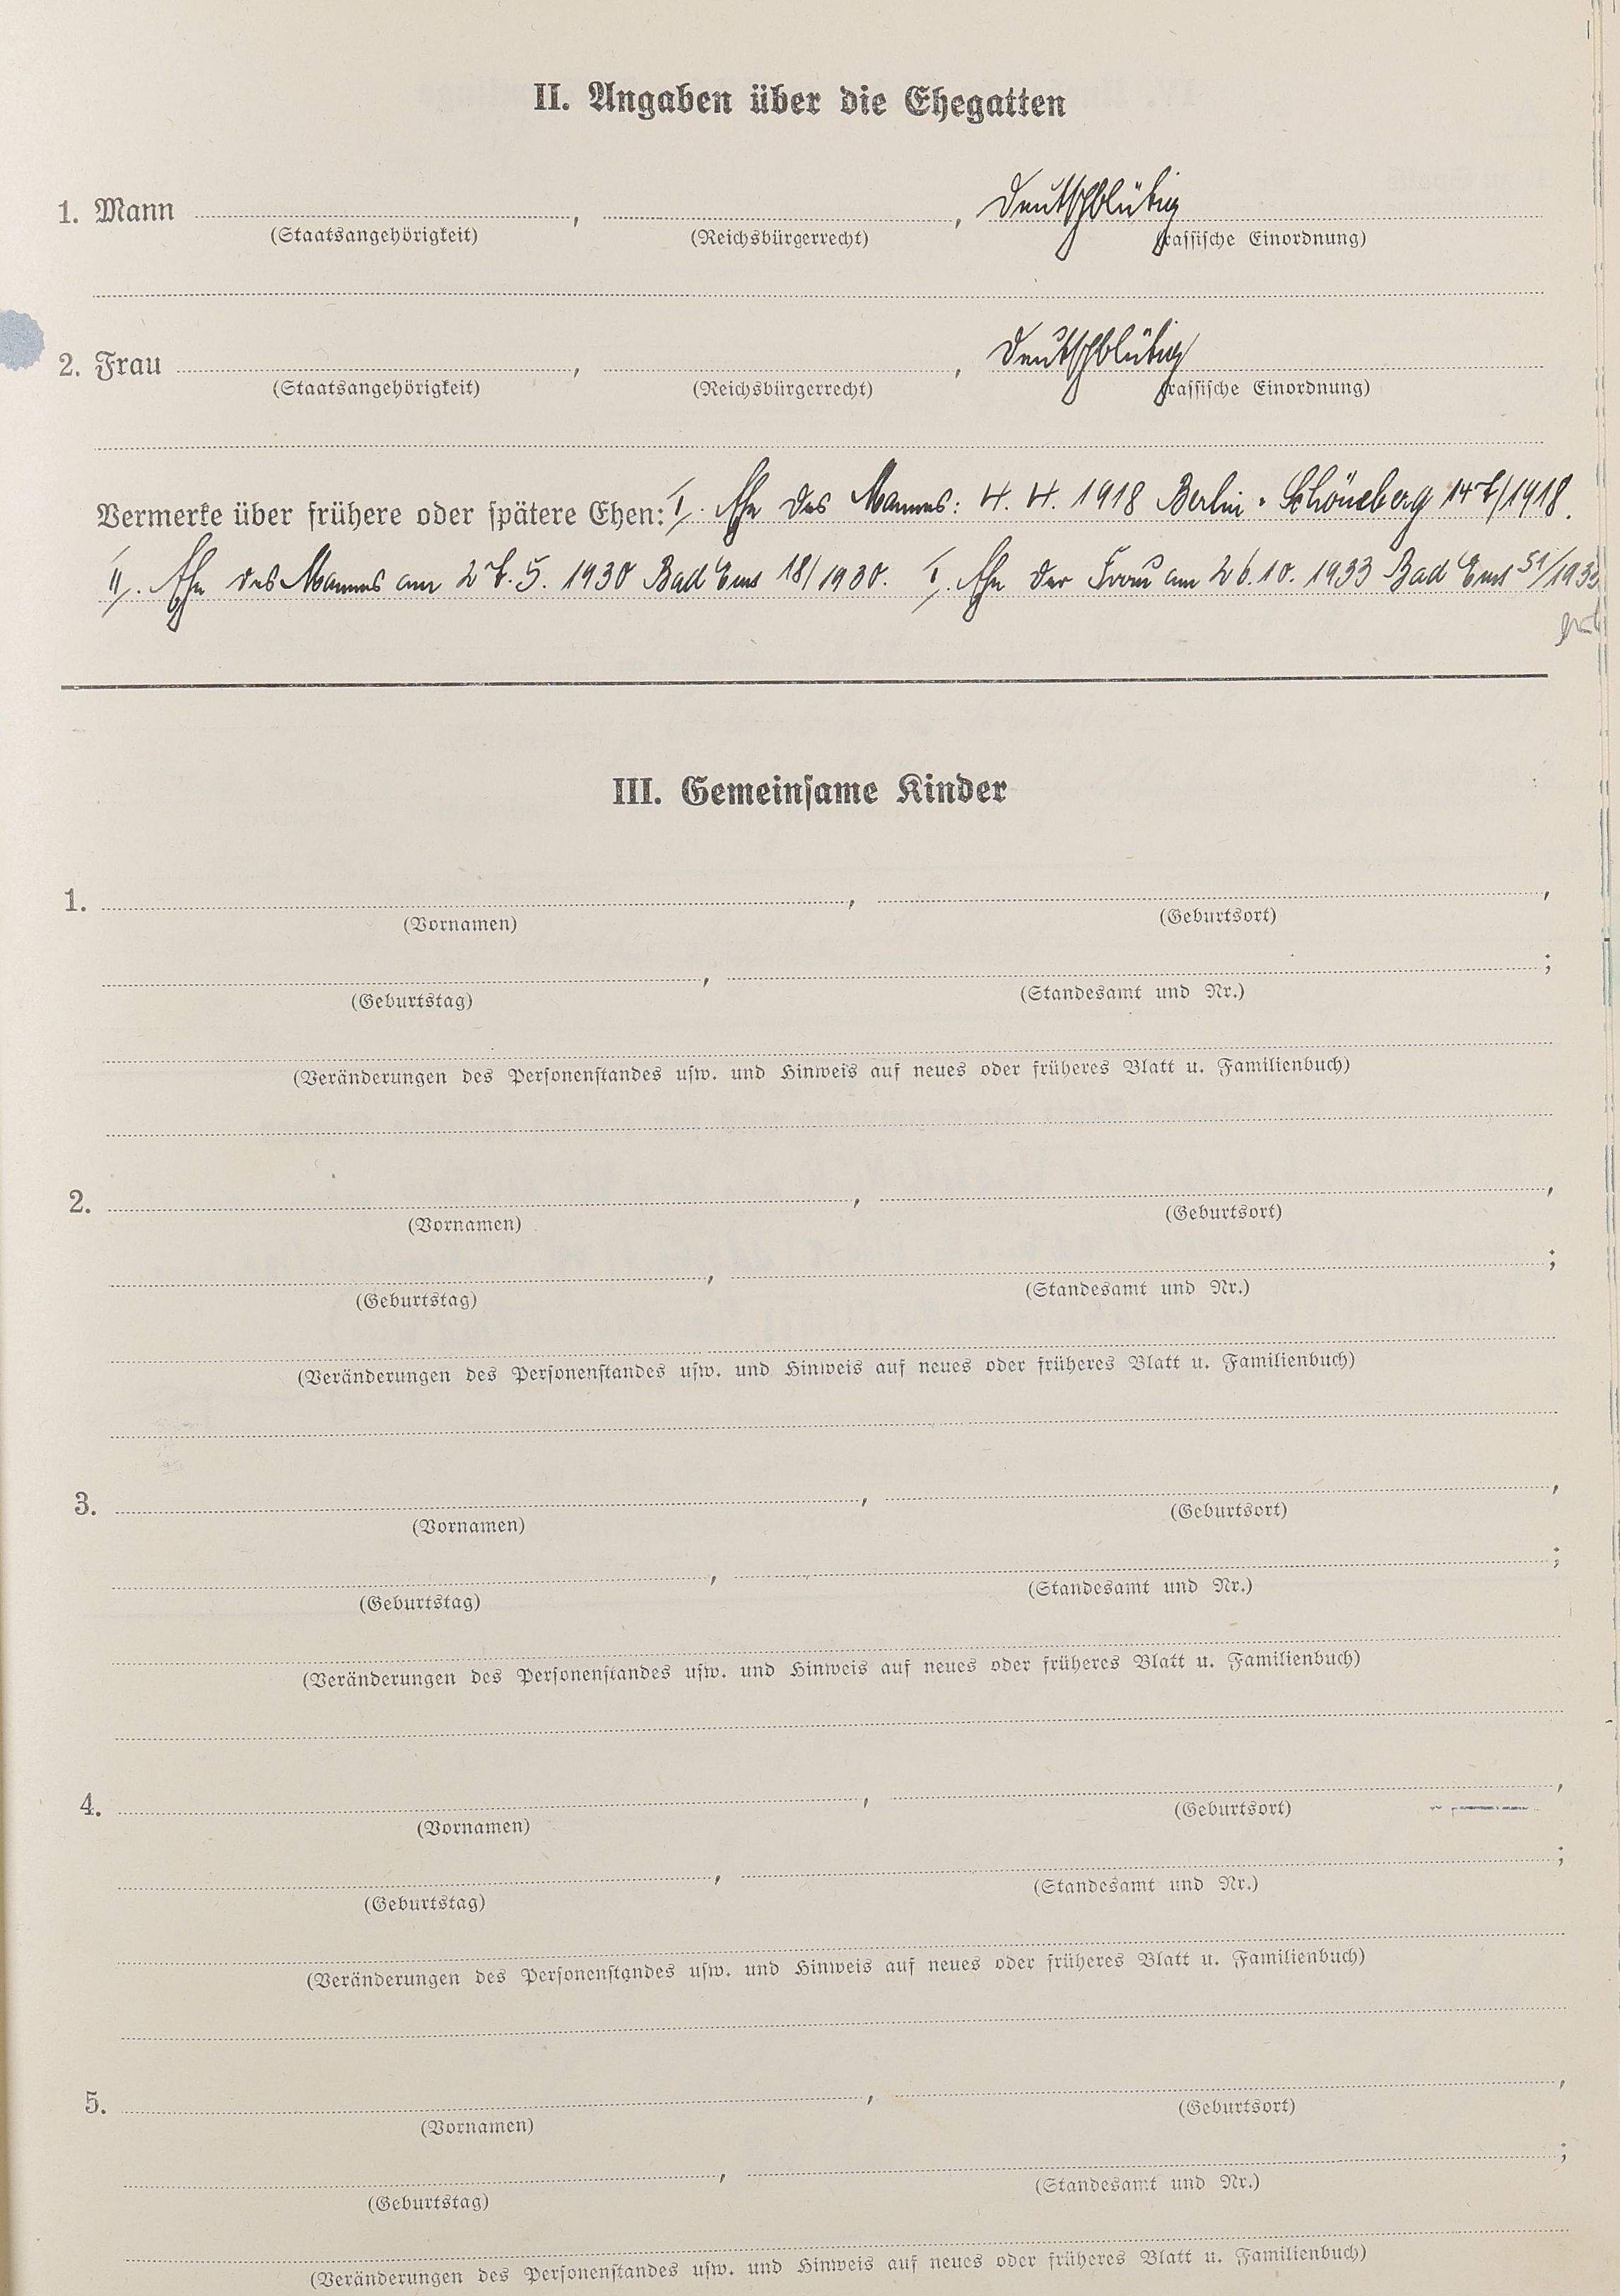 II. Angaben über die Ehegatten
1. Mann , , Deutschblütig
(Staatsangehörigkeit) (Reichsbürgerrecht) (rassische Einordnung)
2. Frau , , Deutschblütig
(Staatsangehörigkeit) (Reichsbürgerrecht) (rassische Einordnung)
Vermerke über frühere oder spätere Ehen: I. Ehe des Mannes: 4. 4. 1918 Berlin-Schöneberg 147/1918.
II. Ehe des Mannes am 27. 5. 1930 Bad Ems 18/1930. I. Ehe der Frau am 26. 10. 1933 Bad Ems 51/1933
III. Gemeinsame Kinder
1. , ,
(Vornamen) (Geburtsort)
, ;
(Geburtstag) (Standesamt und Nr.)
(Veränderungen des Personenstandes usw. und Hinweis auf neues oder früheres Blatt u. Familienbuch)
2. , ,
(Vornamen) (Geburtsort)
, ;
(Geburtstag) (Standesamt und Nr.)
(Veränderungen des Personenstandes usw. und Hinweis auf neues oder früheres Blatt u. Familienbuch)
3. , ,
(Vornamen) (Geburtsort)
, ;
(Geburtstag) (Standesamt und Nr.)
(Veränderungen des Personenstandes usw. und Hinweis auf neues oder früheres Blatt u. Familienbuch)
4. , ,
(Vornamen) (Geburtsort)
, ;
(Geburtstag) (Standesamt und Nr.)
(Veränderungen des Personenstandes usw. und Hinweis auf neues oder früheres Blatt u. Familienbuch)
5. , ,
(Vornamen) (Geburtsort)
, ;
(Geburtstag) (Standesamt und Nr.)
(Veränderungen des Personenstandes usw. und Hinweis auf neues oder früheres Blatt u. Familienbuch)